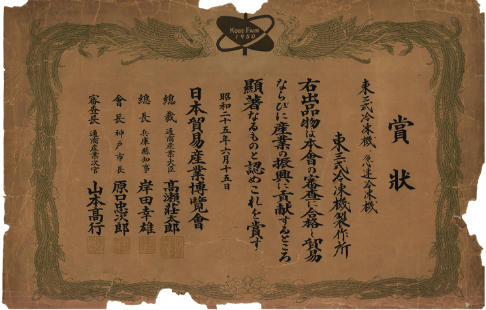 KOBE FAIR
1950
賞狀
東三式冷凍機、急速冷凍機
東三式冷凍機製作所
右出品物は本會の審査に合格し貿易
ならびに産業の振興に貢献するところ
顯著なるものと認めこれを賞す
昭和二十五年六月十五日
日本貿易産業博覽會
總裁 通商産業大臣 高瀬莊太郎
總長 兵庫縣知事 岸田幸雄
會長 神戸市長 原口忠次郎
審査長 通商産業次官 山本高行